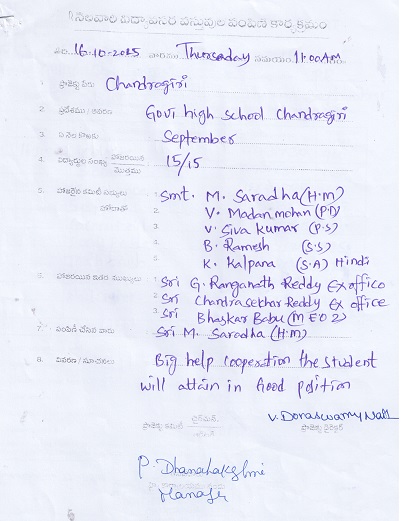 నెలవారి విద్యావసర వస్తువుల పంపిణి కార్యక్రమం
తేది: 16-10-2025 వారము Thursaday సమయం 11:00AM
1. ప్రాజెక్టు పేరు Chandragiri
2. ప్రదేశము / Govt high school Chandragiri
3. ఏ నెల కొఱకు September
4. విద్యార్థుల సంఖ్య హాజరయిన / మొత్తము 15/15
5. హాజరైన కమిటీ సభ్యులు 1. Smt. M. Saradha (H.M)
హోదాతో 2. V. Madanmohan (P.D)
3. V. Siva Kumar (P.S)
4. B. Ramesh (S.S)
5. K. Kalpana (S.A) Hindi
6. హాజరయిన ఇతర ముఖ్యులు 1. Sri G. Ranganath Reddy Ex offico
2. Sri Chandrasekhar Reddy Ex office
3. Sri Bhaskar Babu (MEO2)
7. పంపిణీ చేసిన వారు Sri M. Saradha (H.M)
8. వివరణ / సూచనలు Big help cooperation the student
will attain in Good polition
V. Doraswamy Naidu
ప్రాజెక్టు కమిటీ ఛైర్మన్ ప్రాజెక్టు డైరెక్టర్
P. Dhanalakshmi
Manager